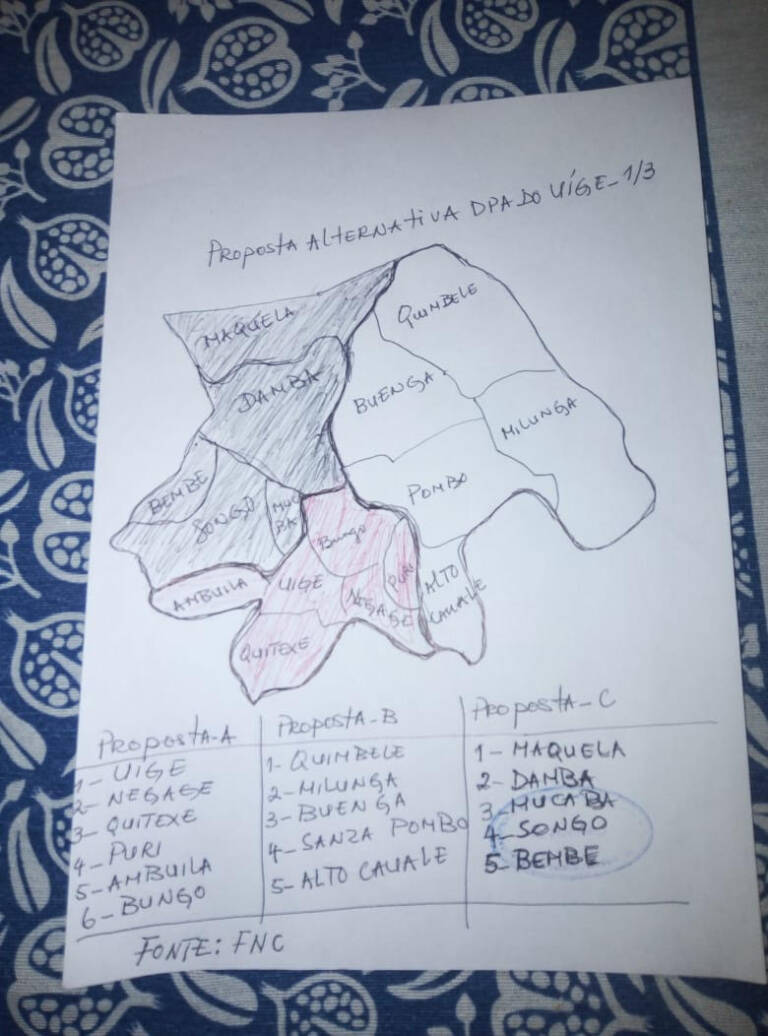 PROPOSTA ALTERNATIVA DPA DO UÍGE - 1/3
MAQUELA
QUIMBELE
DAMBA
BUENGA
MILUNGA
BEMBE
SONGO
MUCA
BA
POMBO
Bungo
AMBUILA
UIGE
NEGA
GE
PURI
ALTO
CAUALE
QUITEXE
PROPOSTA-A
1- UIGE
2- NEGAGE
3- QUITEXE
4- PURI
5- AMBUILA
6- BUNGO
PROPOSTA-B
1- QUIMBELE
2- MILUNGA
3- BUENGA
4- SANZA POMBO
5- ALTO CAUALE
PROPOSTA-C
1- MAQUELA
2- DAMBA
3- MUCABA
4- SONGO
5- BEMBE
FONTE: FNC